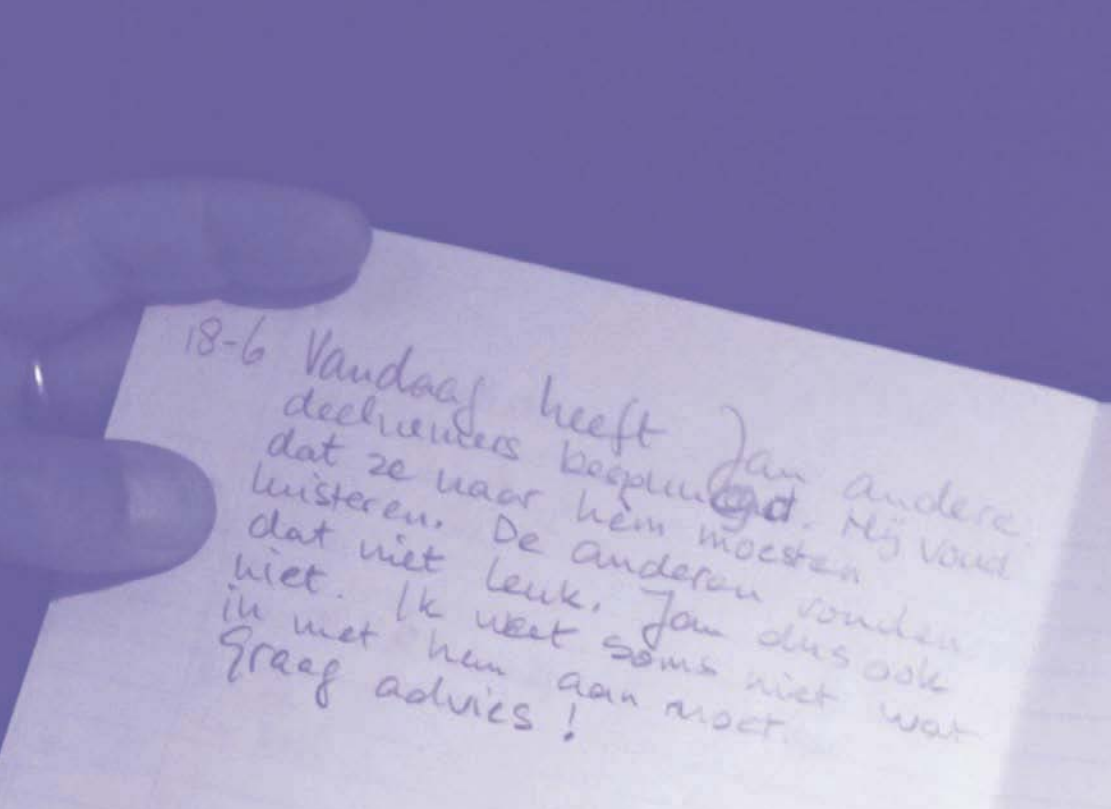 18-6 Vandaag heeft Jan andere
deelnemers bespuugd. Hij vond
dat ze naar hem moesten
luisteren. De anderen vonden
dat niet leuk. Jan dus ook
niet. Ik weet soms niet wat
in met hem aan moet.
Graag advies!